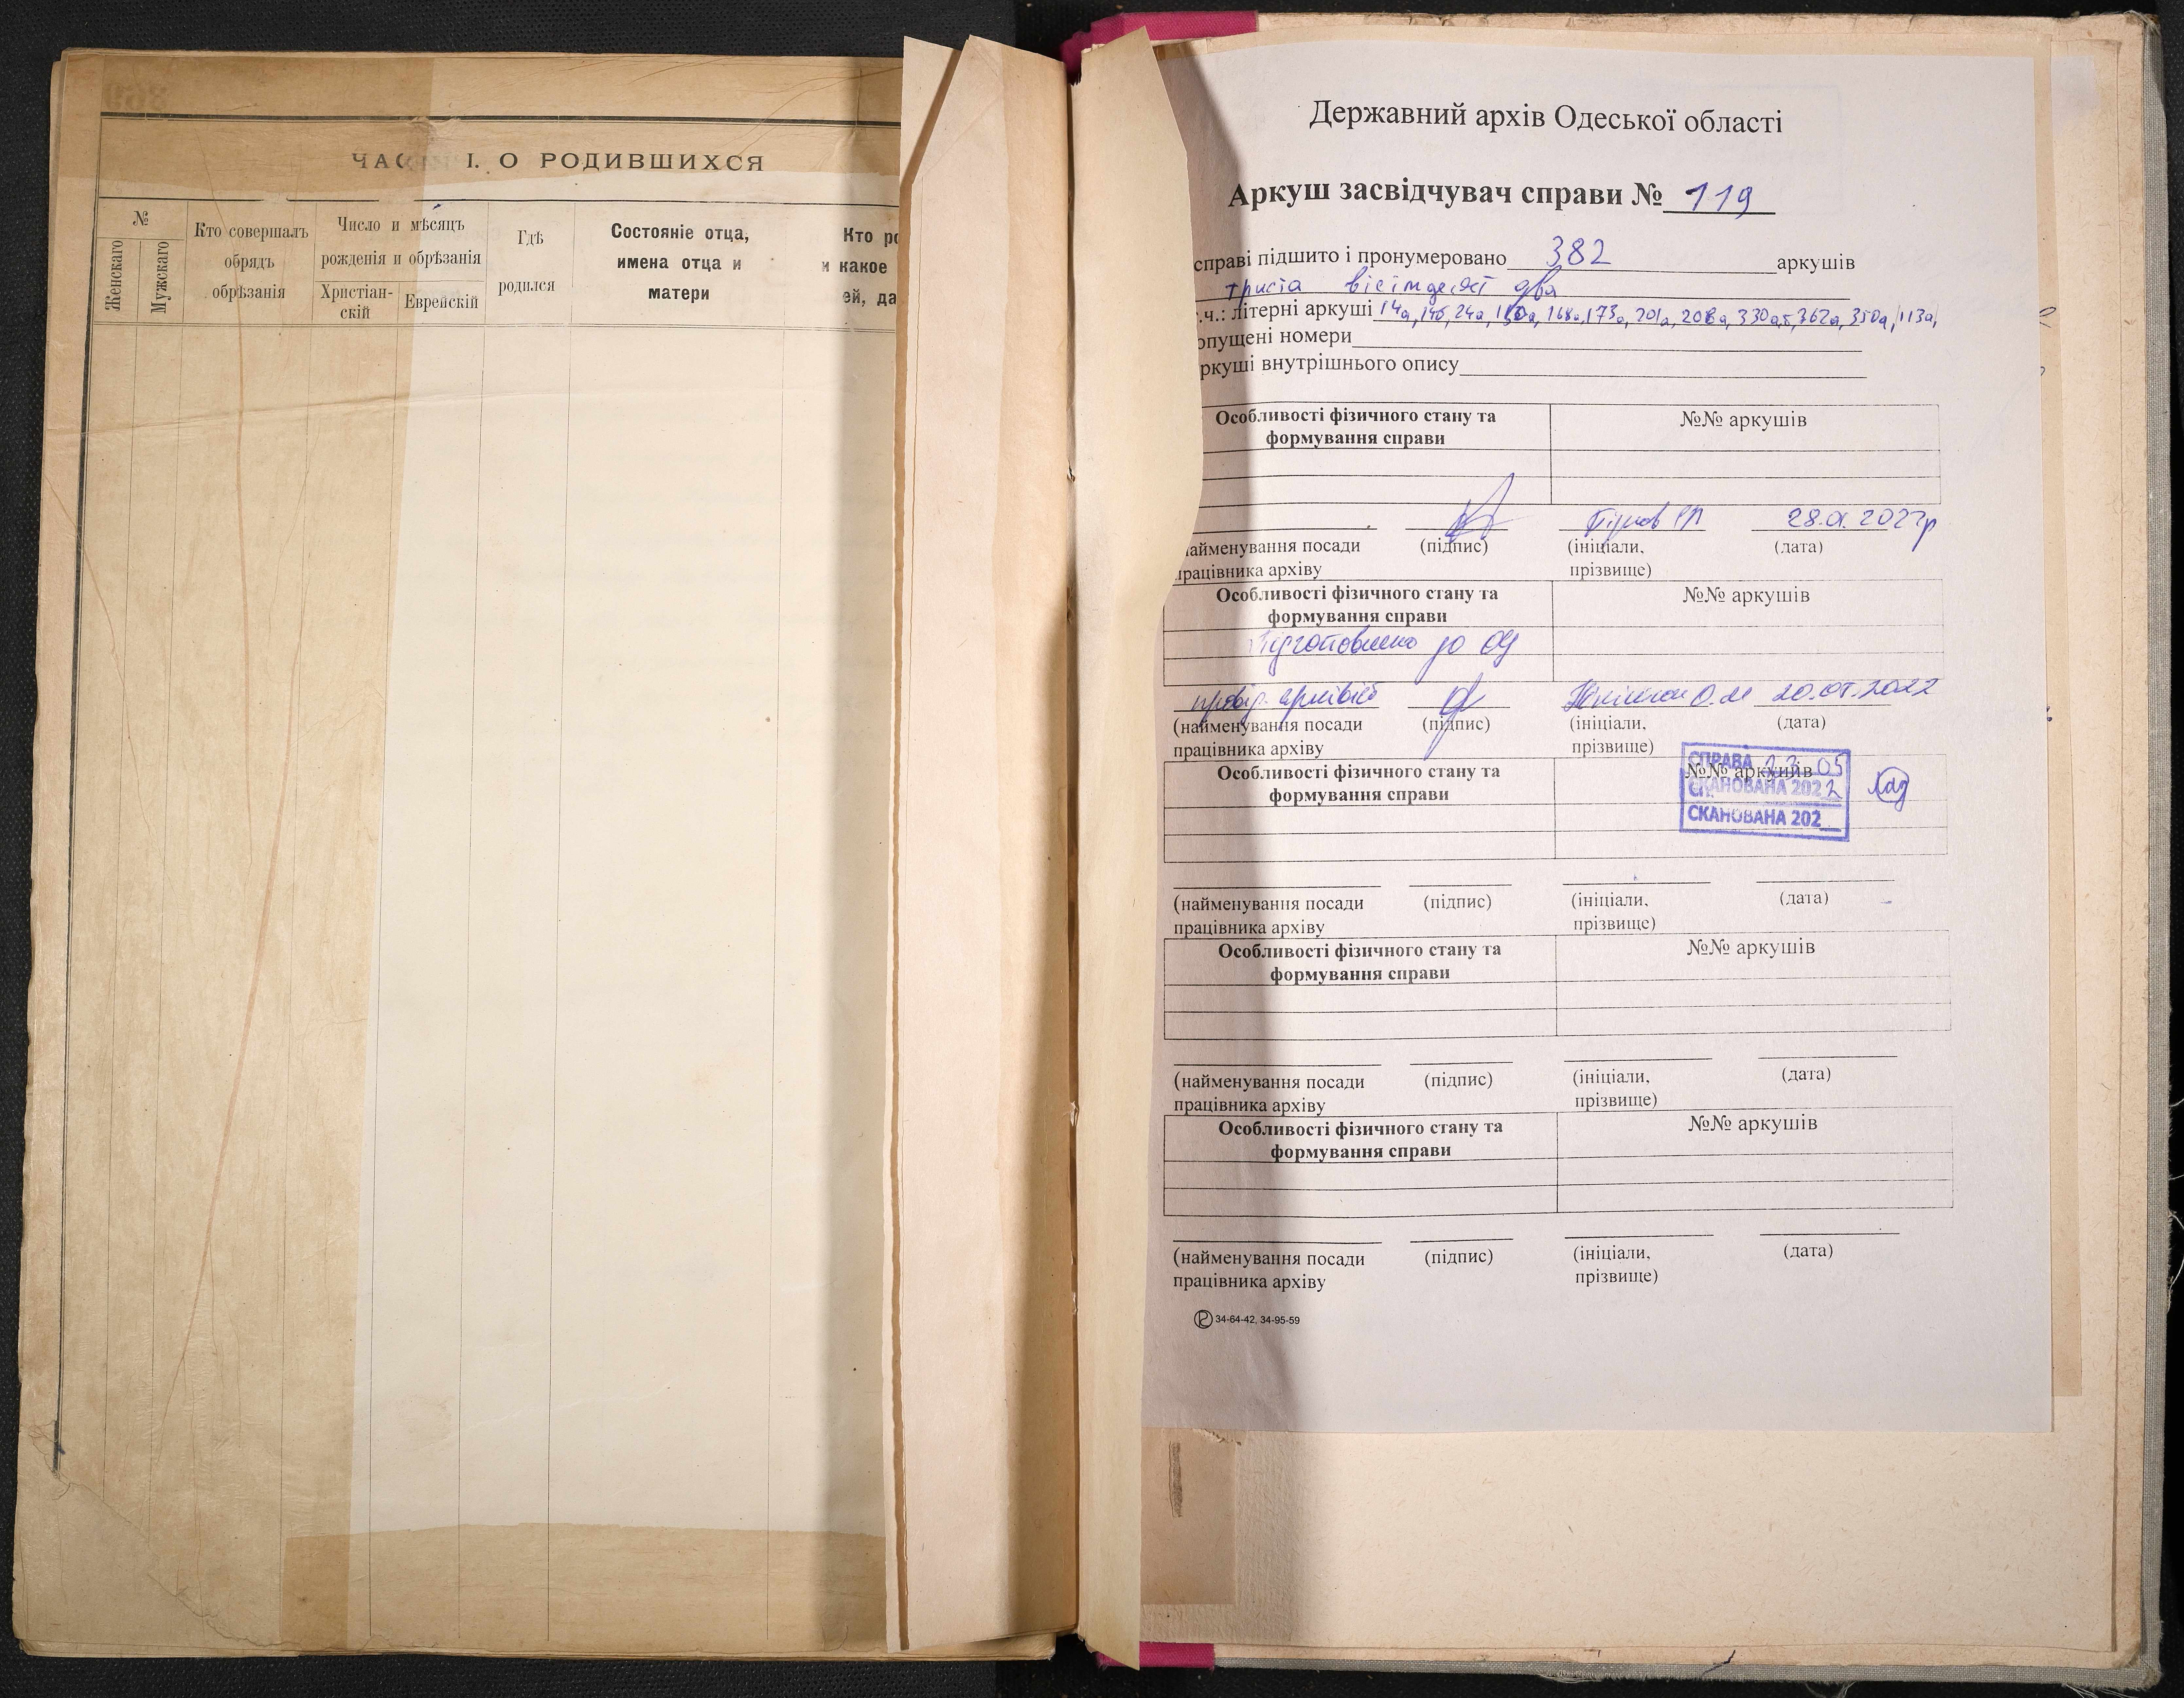 ЧАС I. О РОДИВШИХСЯ
№
Женскаго
Мужскаго
Кто совершалъ
обрядъ
обрѣзанія
Число и мѣсяцъ
рожденія и обрѣзанія
Христіан-
скій
Еврейскій
Гдѣ
родился
Состояніе отца,
имена отца и
матери
Кто ро
и какое
ей, да
Державний архів Одеської області
Аркуш засвідчувач справи № 119
справі підшито і пронумеровано 382 аркушів
триста вісімдесят два
.ч.: літерні аркуші 14а, 14б, 24а, 168а, 173а, 201а, 208а, 362а, 350а, 113а,
опущені номери
ркуші внутрішнього опису
Особливості фізичного стану та
формування справи
№№ аркушів
айменування посади
працівника архіву
(підпис)
(ініціали,
прізвище)
(дата)
Особливості фізичного стану та
формування справи
№№ аркушів
Підготовлено до
провід. архівіст
(найменування посади
працівника архіву
(підпис)
(ініціали,
прізвище)
(дата)
Особливості фізичного стану та
формування справи
№№ аркушів
СПРАВА 23.05
СКАНОВАНА 2022
СКАНОВАНА 202
(найменування посади
працівника архіву
(підпис)
(ініціали,
прізвище)
(дата)
Особливості фізичного стану та
формування справи
№№ аркушів
(найменування посади
працівника архіву
(підпис)
(ініціали,
прізвище)
(дата)
Особливості фізичного стану та
формування справи
№№ аркушів
(найменування посади
працівника архіву
(підпис)
(ініціали,
прізвище)
(дата)
34-64-42, 34-95-59